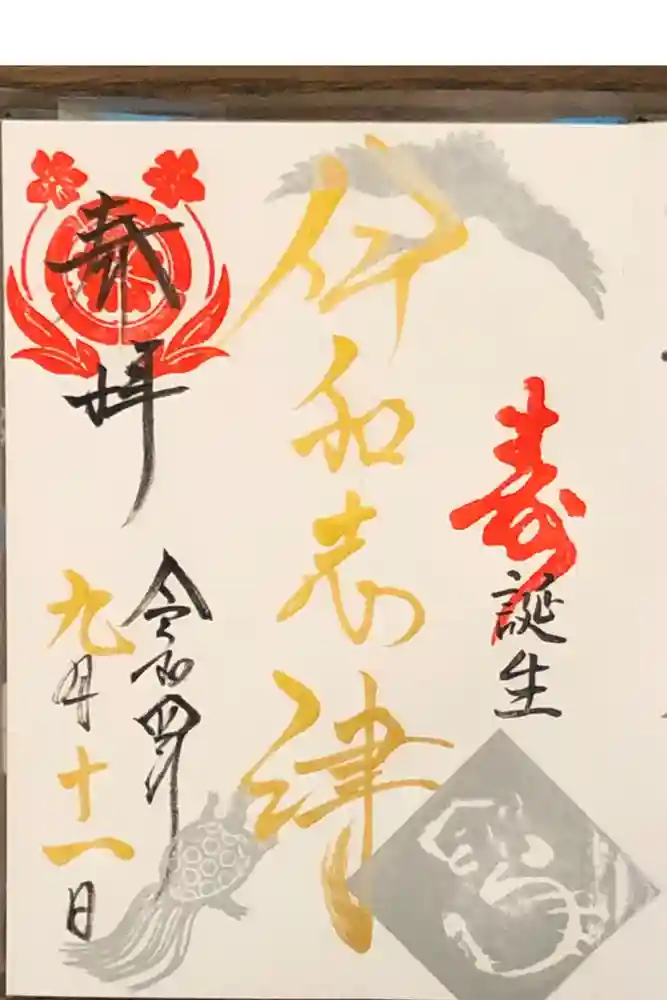 寿
誕生
伊和志津
奉拝
令和四年
九月十一日